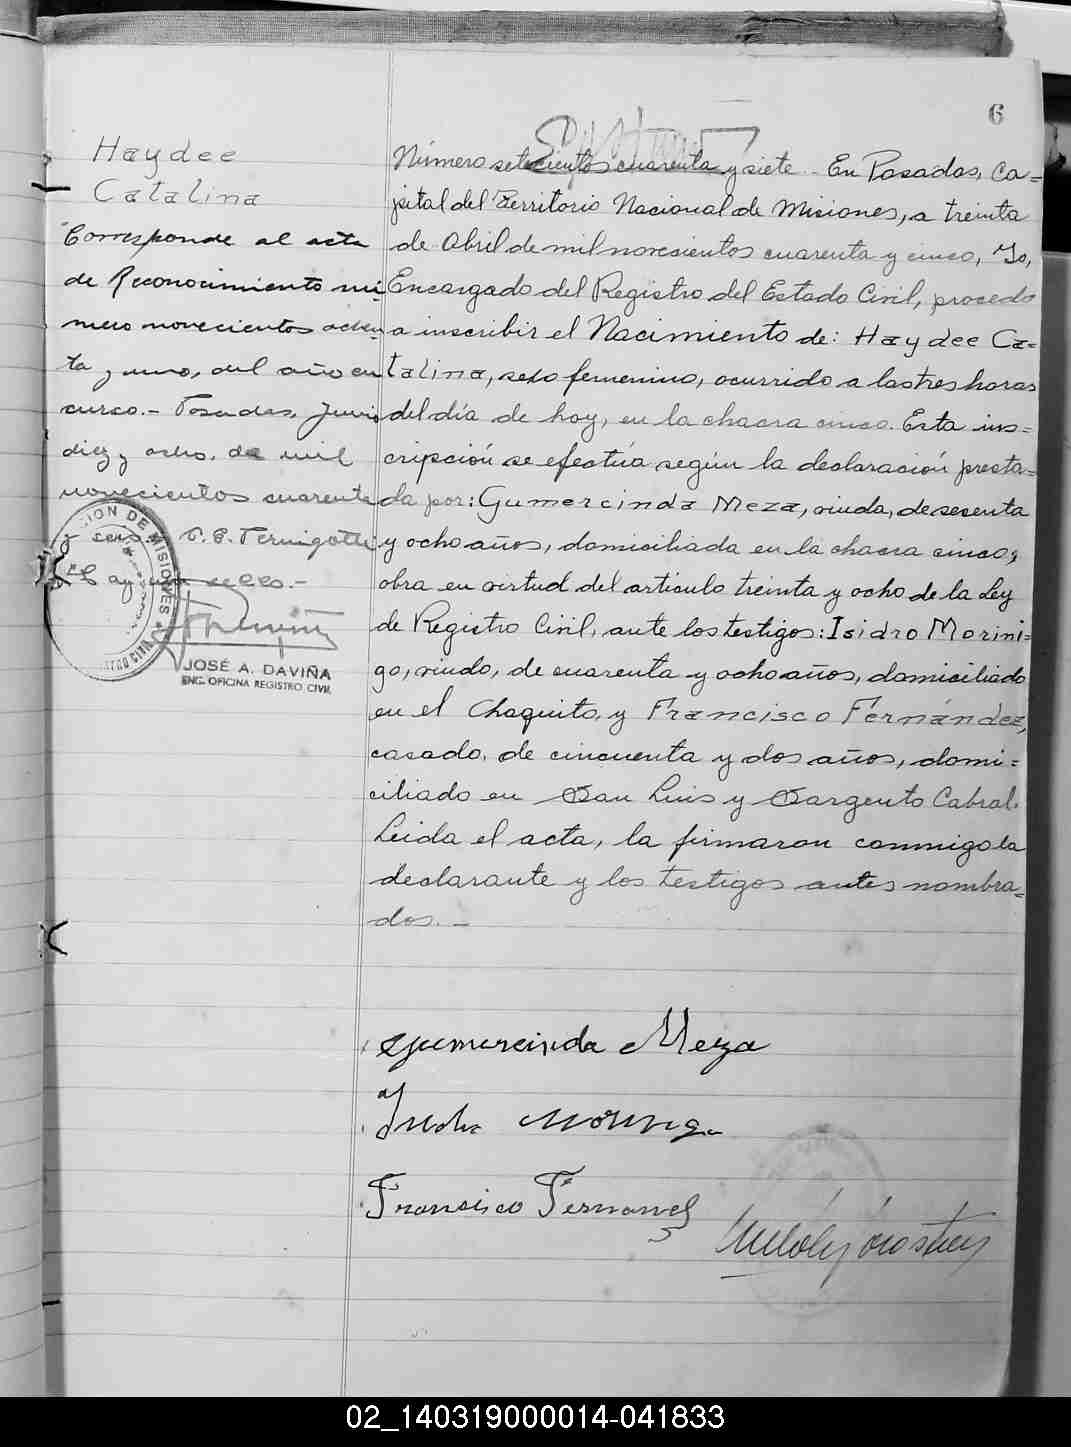 6
Haydee
Catalina
Corresponde al acta
de Reconocimiento nú-
mero novecientos ochen-
ta y uno, del año en
curso.- Posadas, Junio
diez y ocho, de mil
novecientos cuarenta
y seis.
sello.-
ION DE MISIONES
JOSÉ A. DAVIÑA
ENC. OFICINA REGISTRO CIVIL
Número setecientos cuarenta y siete.- En Posadas, Ca=
pital del Territorio Nacional de Misiones, a treinta
de Abril de mil novecientos cuarenta y cinco, Yo,
Encargado del Registro del Estado Civil, procedo
a inscribir el Nacimiento de: Haydee Ca=
talina, sexo femenino, ocurrido a las tres horas
del día de hoy, en la chacra cinco. Esta ins=
cripción se efectúa según la declaración presta=
da por: Gumercinda Meza, viuda, de sesenta
y ocho años, domiciliada en la chacra cinco,
obra en virtud del articulo treinta y ocho de la Ley
de Registro Civil, ante los testigos: Isidro Morini=
go, viudo, de cuarenta y ocho años, domiciliado
en el Chaquito, y Francisco Fernández,
casado, de cincuenta y dos años, domi=
ciliado en San Luis y Sargento Cabral.
Leida el acta, la firmaron conmigo la
declarante y los testigos antes nombra=
dos.-
Gumercinda Meza
Francisco Fernandez
02_140319000014-041833